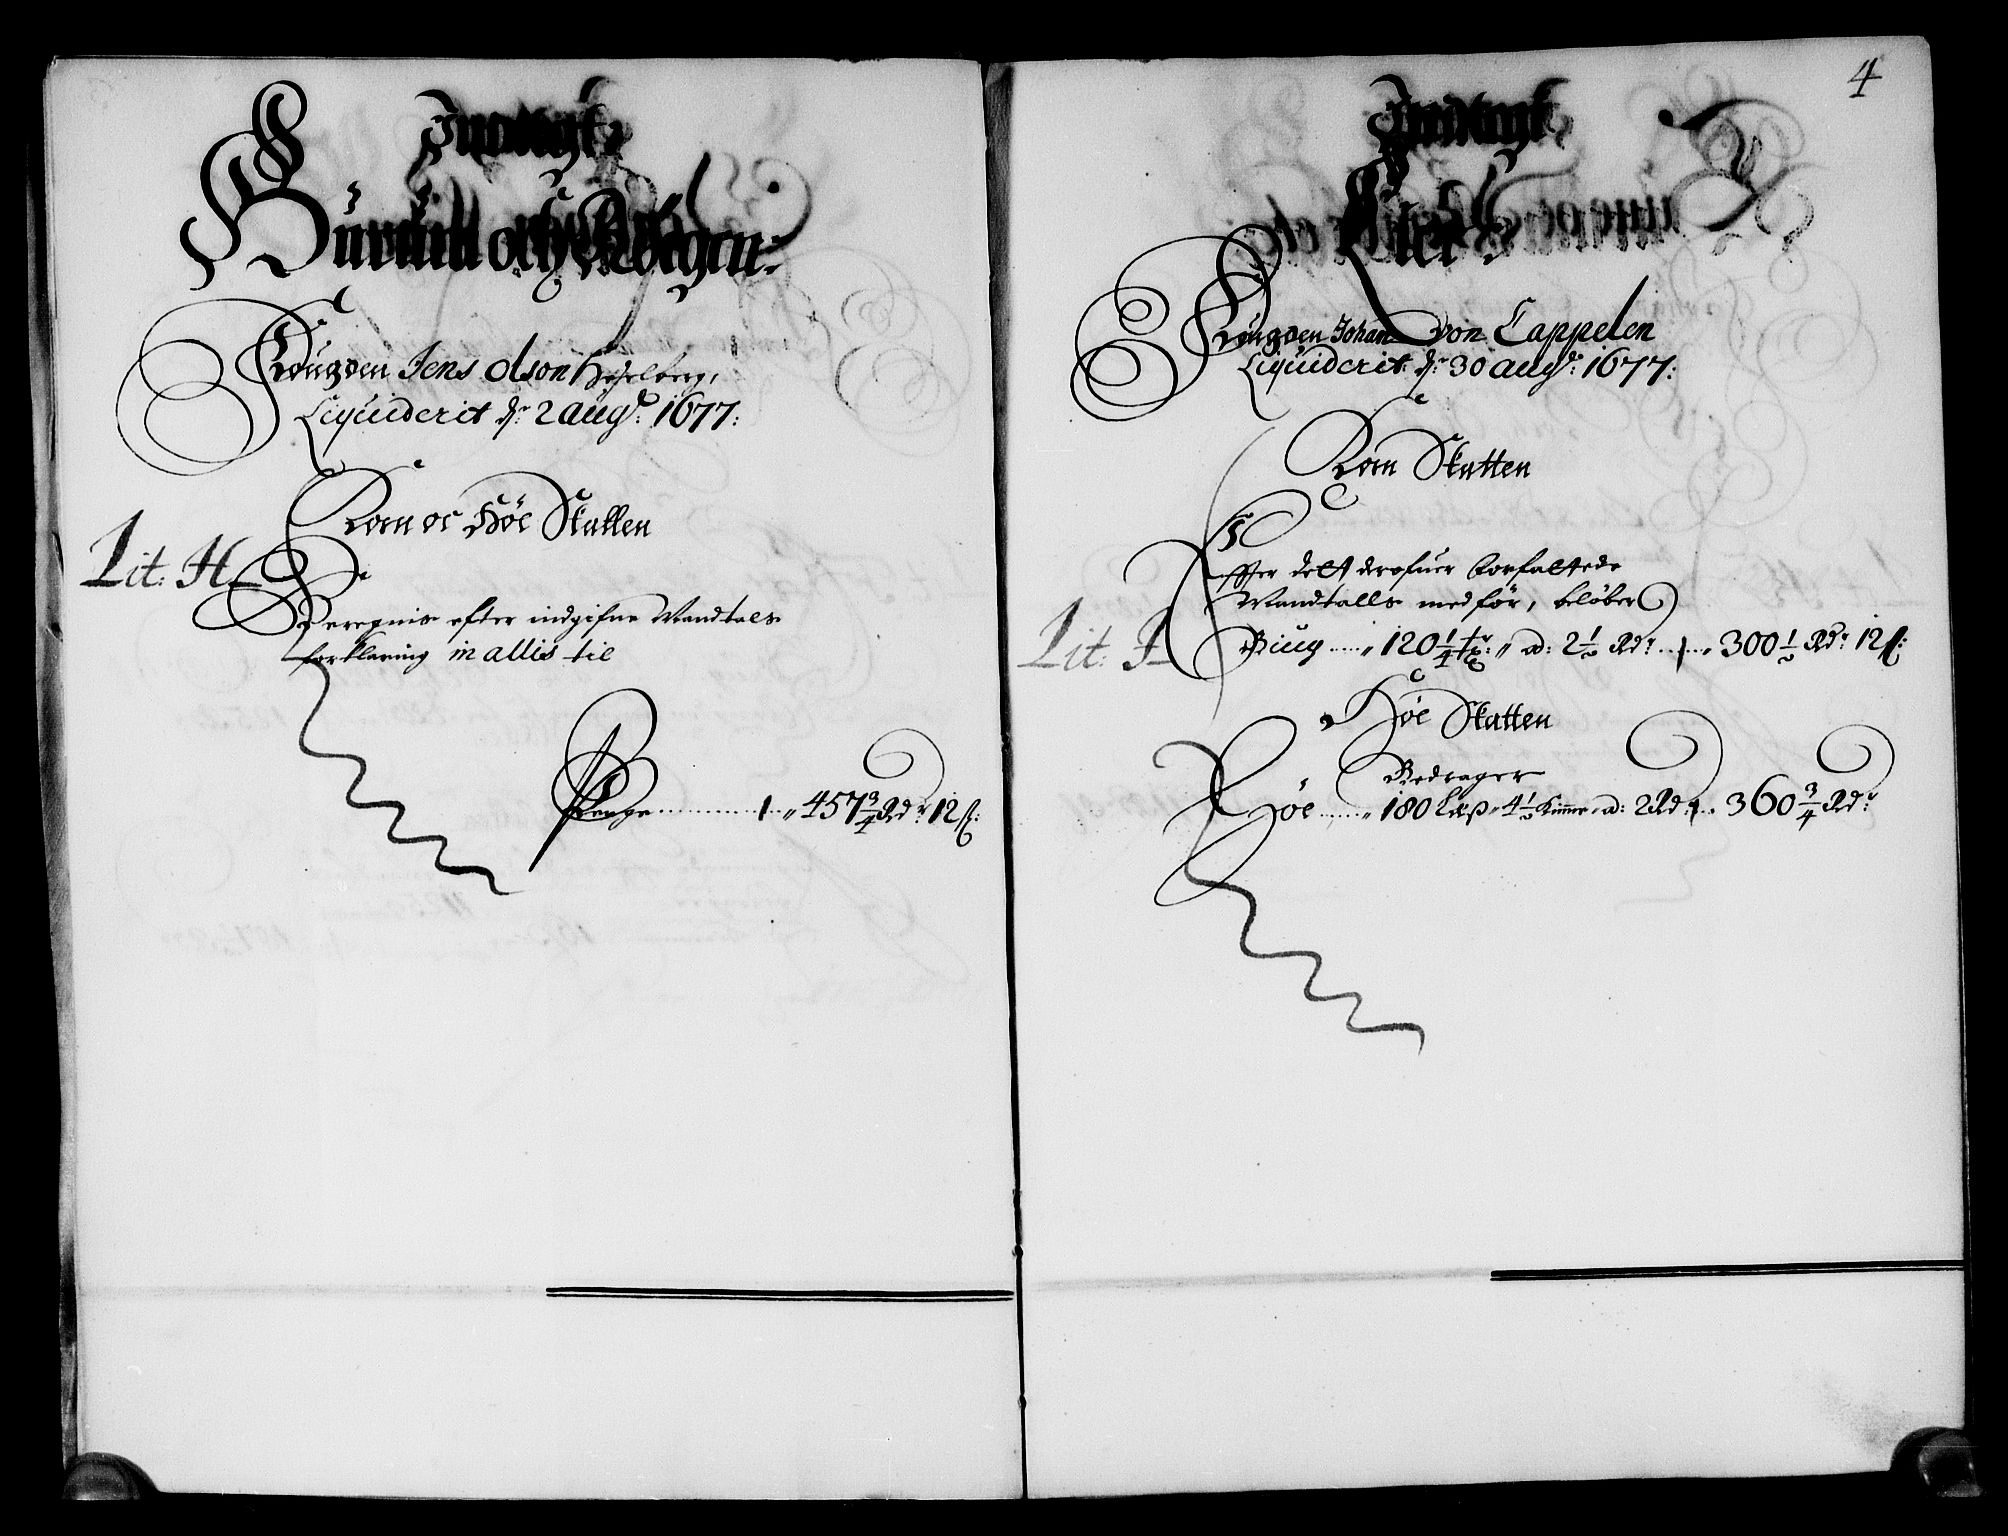 Indtegt
Burüm och Skoegen:
Fougden Jens Olson Hesselberg,
Liquiderit dr: 2 augst: 1677:
Korn oc Höe Skatten
Lit: H
Beregnis efter indgifne Mandtals
forklaring in allis til
Penge ............ „ 457 3/4 Rdr 12 ß:
4
Indtegt
Lier
Fougden Johan von Cappelen
Liquiderit dr: 30 augst: 1677:
Korn Skatten
Effter deris derofuer forfattede
Mandtalls medför, belöber
Lit: I
Biug ..... „ 120 1/4 tr: „ ad: 2 1/2 Rdr ..... „ 300 1/2 Rdr 12 ß:
Höe Skatten
Bedrager
Höe ...... „ 180 Læs „ 4 1/2 Kimer „ ad: 2 Rdr .... 360 3/4 Rdr